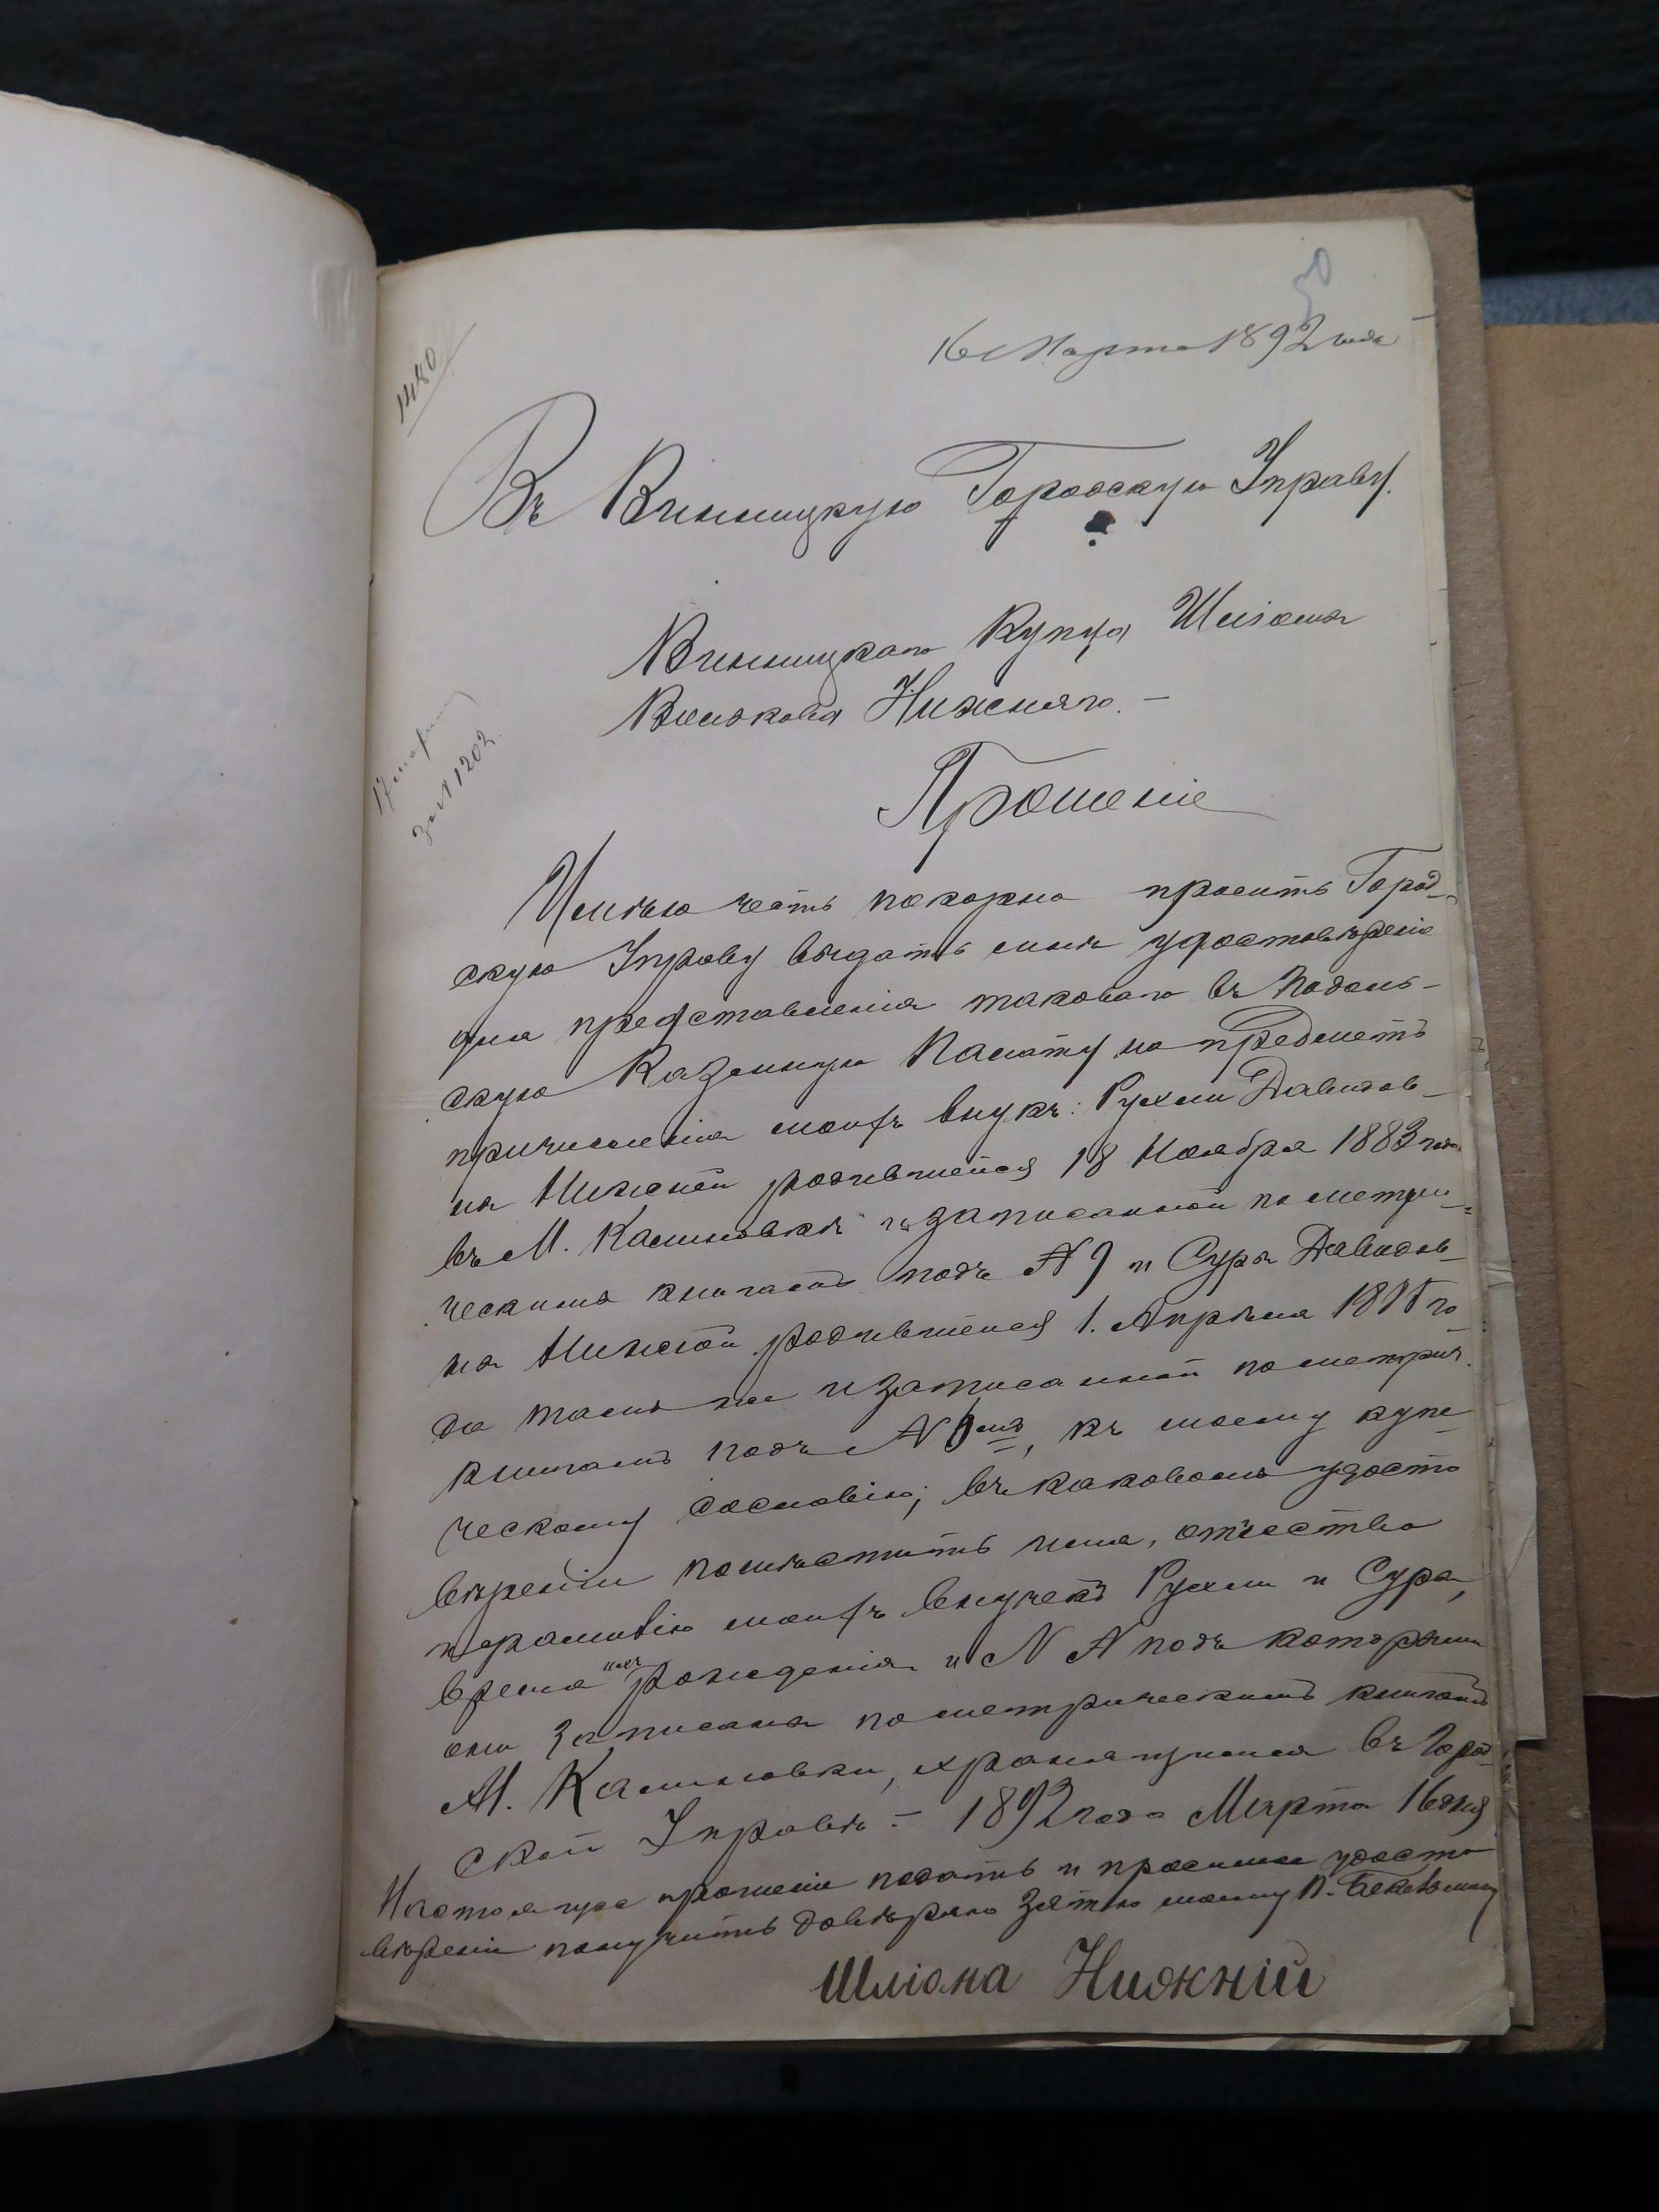 50
16 Марта 1892 года
1480
Въ Винницкую Городскую Управу.
Винницкаго Купца Шліома
Волькова Нижняго. –
17 марта
за № 1202.
Прошеніе
Имѣю честь покорно просить Город-
скую Управу выдать мнѣ удостовѣреніе
для представленія таковаго въ Подоль-
скую Казенную Палату на предметъ
причисленія моихъ внукъ: Рухли Давидов-
на Нижней родившейся 18 Ноября 1883 года
въ М. Калиновкѣ и записанной по метри-
ческимъ книгамъ подъ № 9 и Сура Давидов-
на Нижной родившейся 1. Апрѣля
да тамъ же и записанной по метрич.
книгамъ подъ № къ моему купе-
ческому сословію; въ каковомъ удосто
вѣреніи помѣстить имя, отчество
и фамилію моихъ внучекъ Рухли и Сура,
время ихъ рожденія и № № подъ которыми
они записаны по метрическимъ книгамъ
М. Калиновки, хранящимся въ Город
ской Управѣ – 1892 года Марта 16 дня
Настоящее прошеніе подать и просимое удосто
вѣреніе получить довѣряю зятю моему
Шліома Нижній